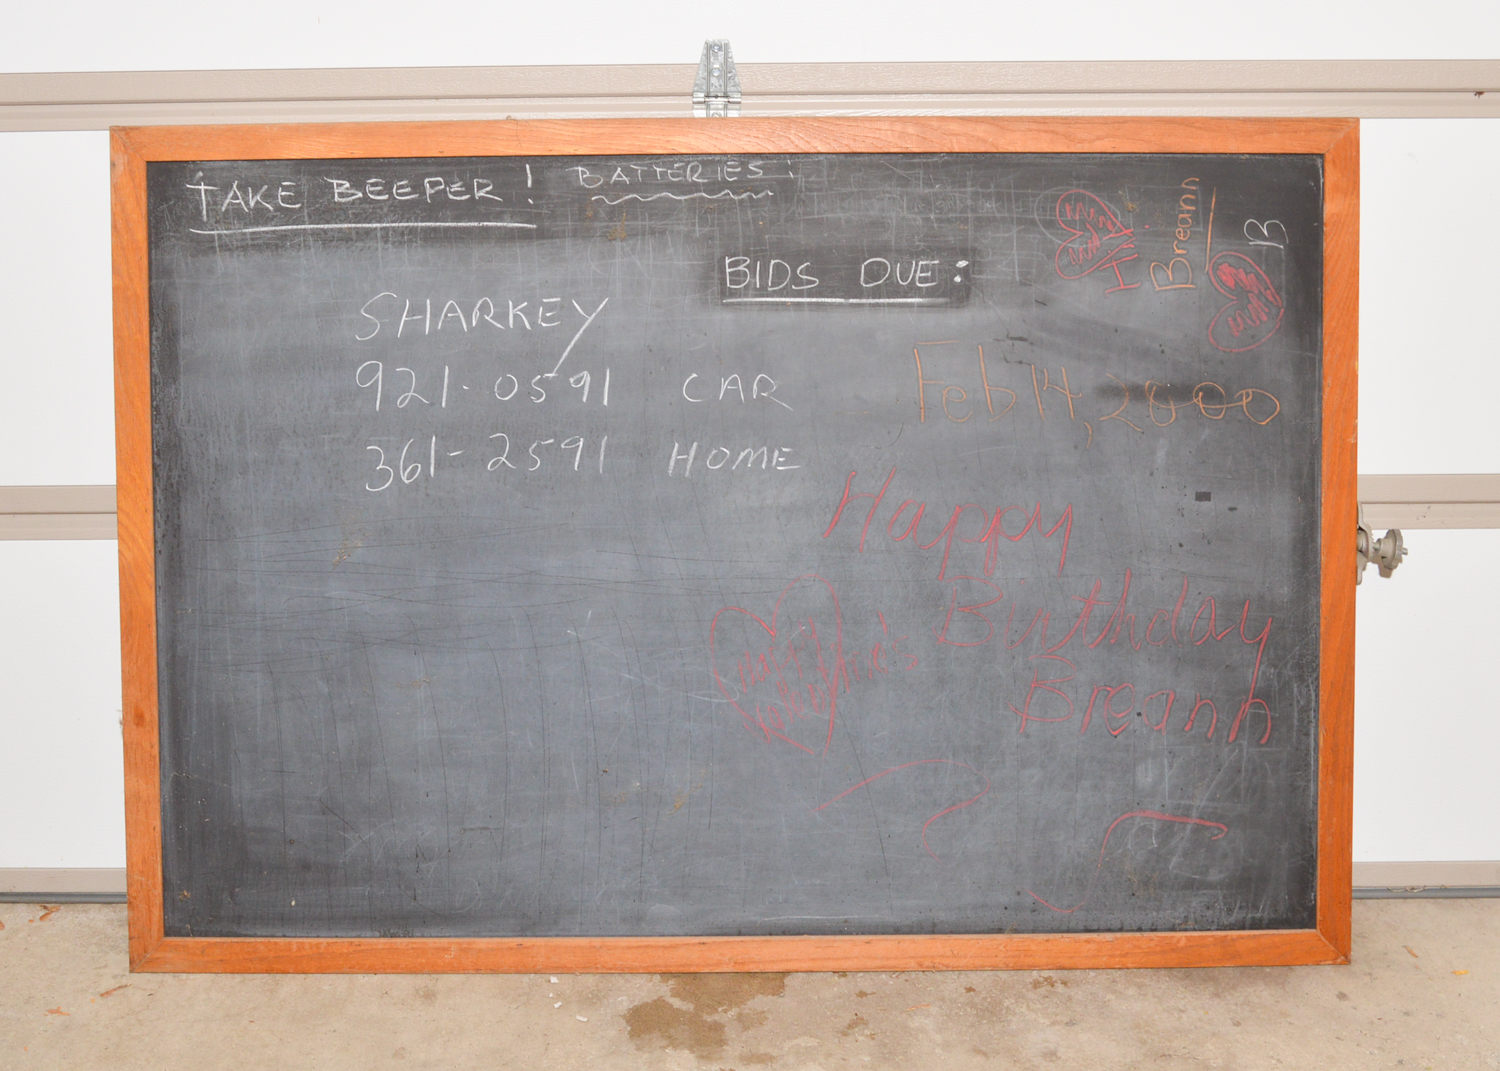 TAKE BEEPER! BATTERIES:
BIDS DUE:
SHARKEY
921-0591 CAR
361-2591 HOME
Hi
Breann
B
Feb 14, 2000
Happy
Birthday
Breann
Happy
Valentine's